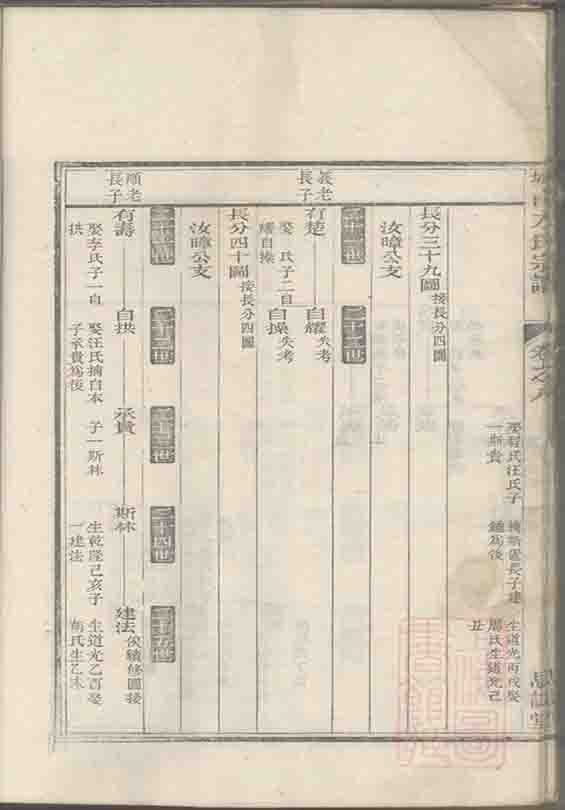 方氏宗譜
卷之八
娶程氏汪氏子
一斯貴
長子建
鍾爲後
生道光丙戌娶
周氏生道光己
丑
長分三十九圖
接長分四圖
汝暐公支
義老
長子
二十一世
二十二世
有楚
自耀
失考
娶 氏子二自
耀自操
自操
失考
長分四十圖
接長分四圖
汝暐公支
順老
長子
二十三世
二十四世
二十五世
有壽
娶李氏子一自
拱
自拱
娶汪氏摘自本
子承貴爲後
承貴
子一斯林
斯林
生乾隆己亥子
一建法
建法
俟續修圖接
生道光乙酉娶
胡氏生乙未